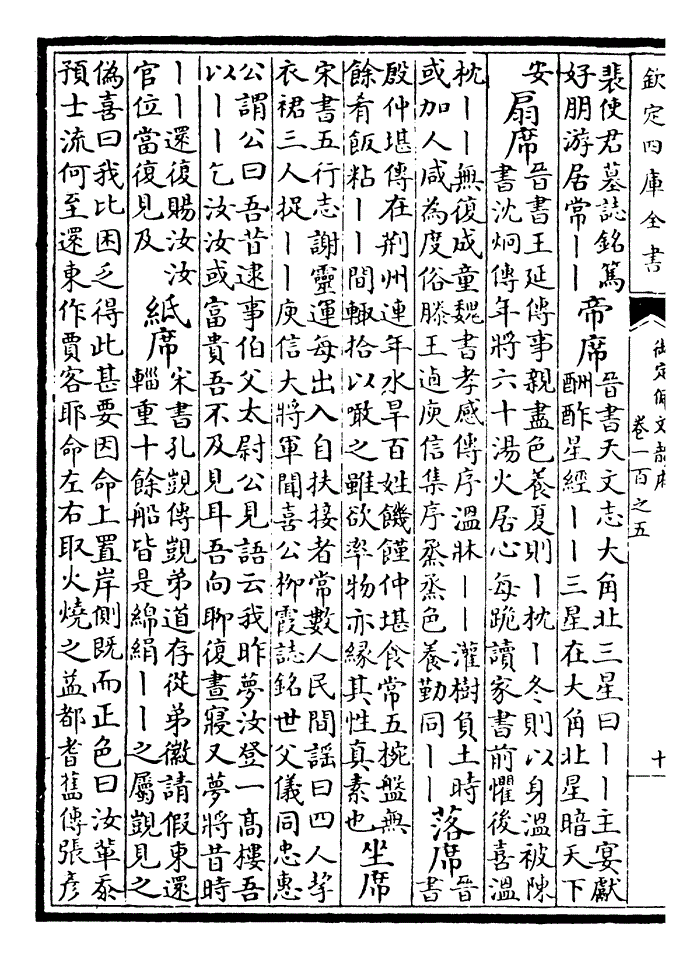 欽定四庫全書
御定佩文韻府
卷一百之五
十
裴使君墓誌銘篤
好朋游居常丨丨
帝席
晉書天文志大角北三星曰丨丨主宴獻
酬酢星經丨丨三星在大角北星暗天下
安
扇席
晉書王延傳事親盡色養夏則丨枕丨冬則以身溫被陳
書沈炯傳年將六十湯火居心每跪讀家書前懼後喜溫
枕丨丨無復成童魏書孝感傳序溫牀丨丨灌樹負土時
或加人咸為度俗滕王逌庾信集序烝烝色養勤同丨丨
落席
晉
書
殷仲堪傳在荆州連年水旱百姓饑饉仲堪食常五椀盤無
餘肴飯粘丨丨間輙拾以噉之雖欲率物亦緣其性真素也
坐席
宋書五行志謝靈運每出入自扶接者常數人民間謡曰四人挈
衣裙三人捉丨丨庾信大將軍聞喜公柳霞誌銘世父儀同忠惠
公謂公曰吾昔逮事伯父太尉公見語云我昨夢汝登一高樓吾
以丨丨乞汝汝或富貴吾不及見耳吾向聊復晝寢又夢將昔時
丨丨還復賜汝汝
官位當復見及
紙席
宋書孔覬傳覬弟道存從弟徽請假東還
輜重十餘船皆是綿絹丨丨之屬覬見之
偽喜曰我比困乏得此甚要因命上置岸側既而正色曰汝輩忝
預士流何至還東作賈客耶命左右取火燒之益都耆舊傳張彦